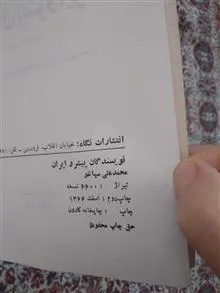 انتشارات نگاه: خیابان انقلاب، فروردین - تلفن:
نویسندگان پیشرو ایران
محمدعلی سپانلو
تیراژ : ۶۶۰۰ نسخه
چاپ دوم : اسفند ۱۳۶۶
چاپ : چاپخانه کارون
حق چاپ محفوظ